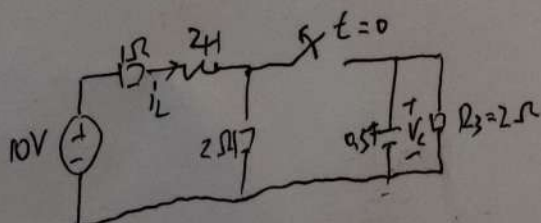 1Ω 2H t=0
iL
10V + - 2Ω 0,5F + Vc - R3=2Ω